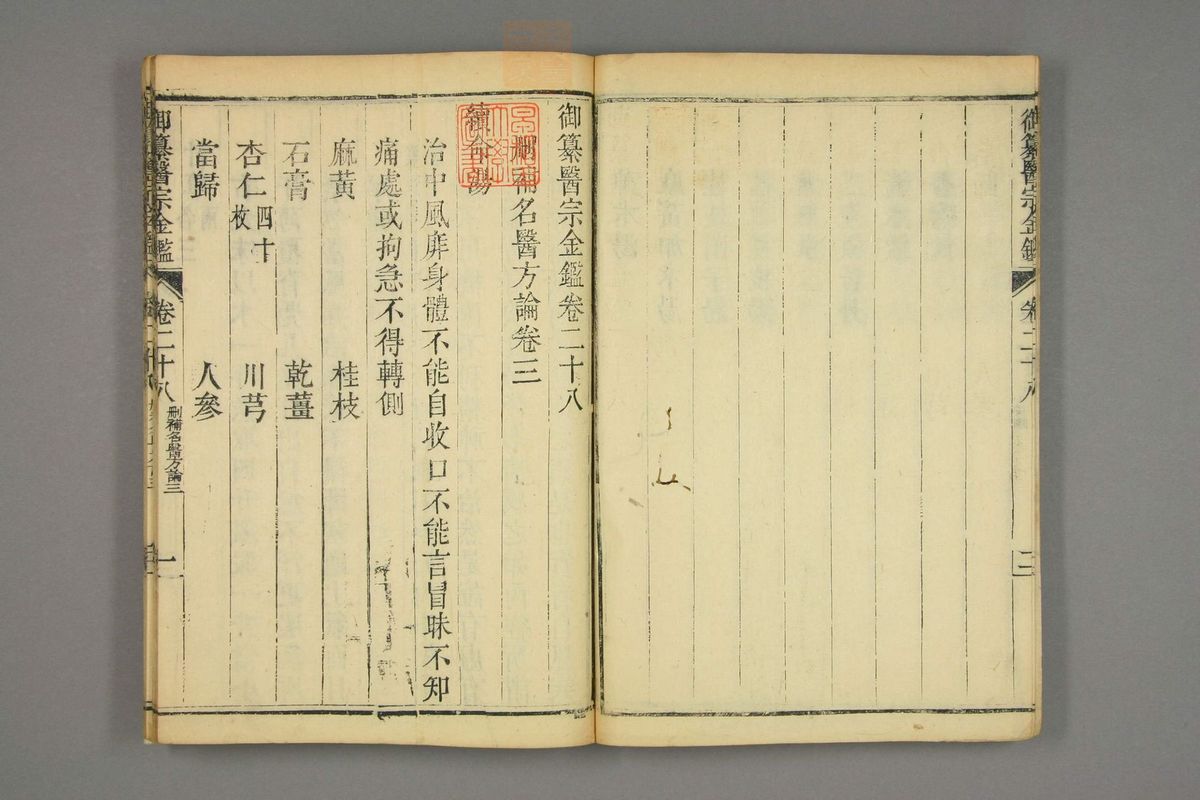 御纂醫宗金鑑
卷二十八
二
御纂醫宗金鑑卷二十八
刪補名醫方論卷三
續命湯
治中風痱身體不能自收口不能言冒昧不知
痛處或拘急不得轉側
麻黃 桂枝
石膏 乾薑
杏仁四十枚 川芎
當歸 人參
御纂醫宗金鑑
卷二十八
刪補名醫方論三
一